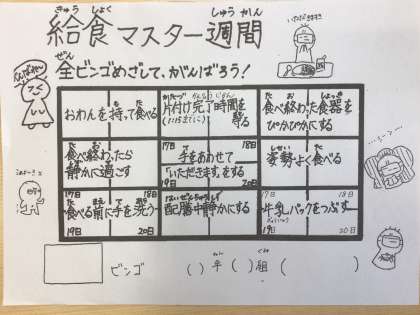 給食マスター週間
きゅう しょく しゅう かん
全ビンゴめざして、がんばろう!
ぜん
いただきます
がんばれ〜
おわんを持って食べる
片付け完了時間を守る
食べ終わった食器をぴかぴかにする
食べ終わったら静かに過ごす
17日 18日
手をあわせて「いただきます」をする
19日 20日
姿勢よく食べる
17日 18日
食べる前に手を洗う
19日 20日
はいぜんちゅうしず
配膳中静かにする
17日 18日
牛乳パックをつぶす
ぎゅうにゅう
19日 20日
ビンゴ ( )年( )組( )